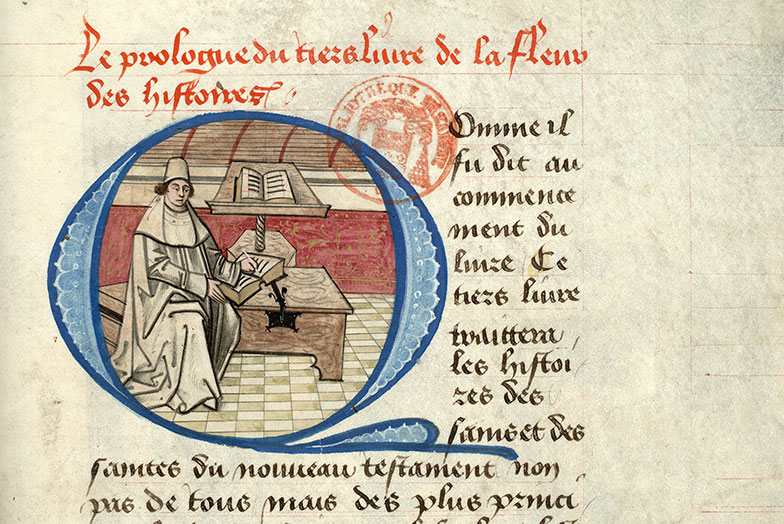 Le prologue du tiers liure de la fleur
des histoires
BIBLIOTHEQUE
Qomme il
fu dit au
commence
ment du
liure Ce
tiers liure
traittera
les histoi
res des
sains et des
saintes du nouueau testament non
pas de tous mais des plus princi